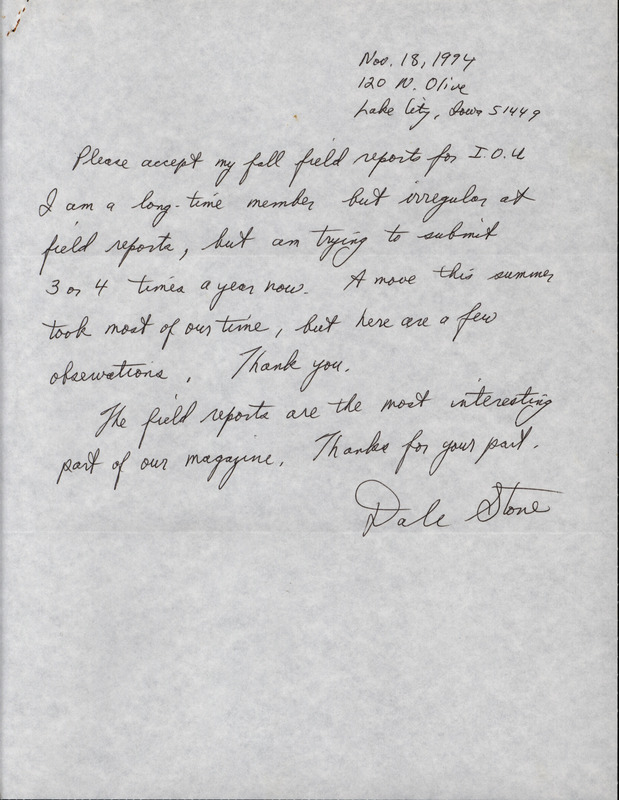 Nov. 18, 1994
120 N. Olive
Lake City, Iowa 51449
Please accept my fall field reports for I.O.U
I am a long-time member but irregular at
field reports, but am trying to submit
3 or 4 times a year now. A move this summer
took most of our time, but here are a few
observations. Thank you.
The field reports are the most interesting
part of our magazine. Thanks for your part.
Dale Stone